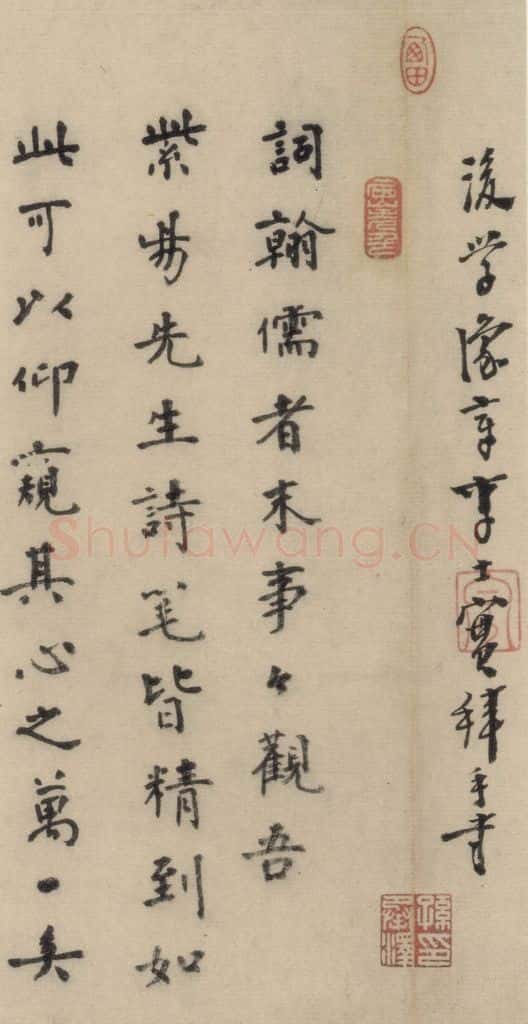 後学豫章李士實拜手書
詞翰儒者末事々觀吾
紫昜先生詩笔皆精到如
此可以仰窺其心之萬一矣
Shufawang.CN